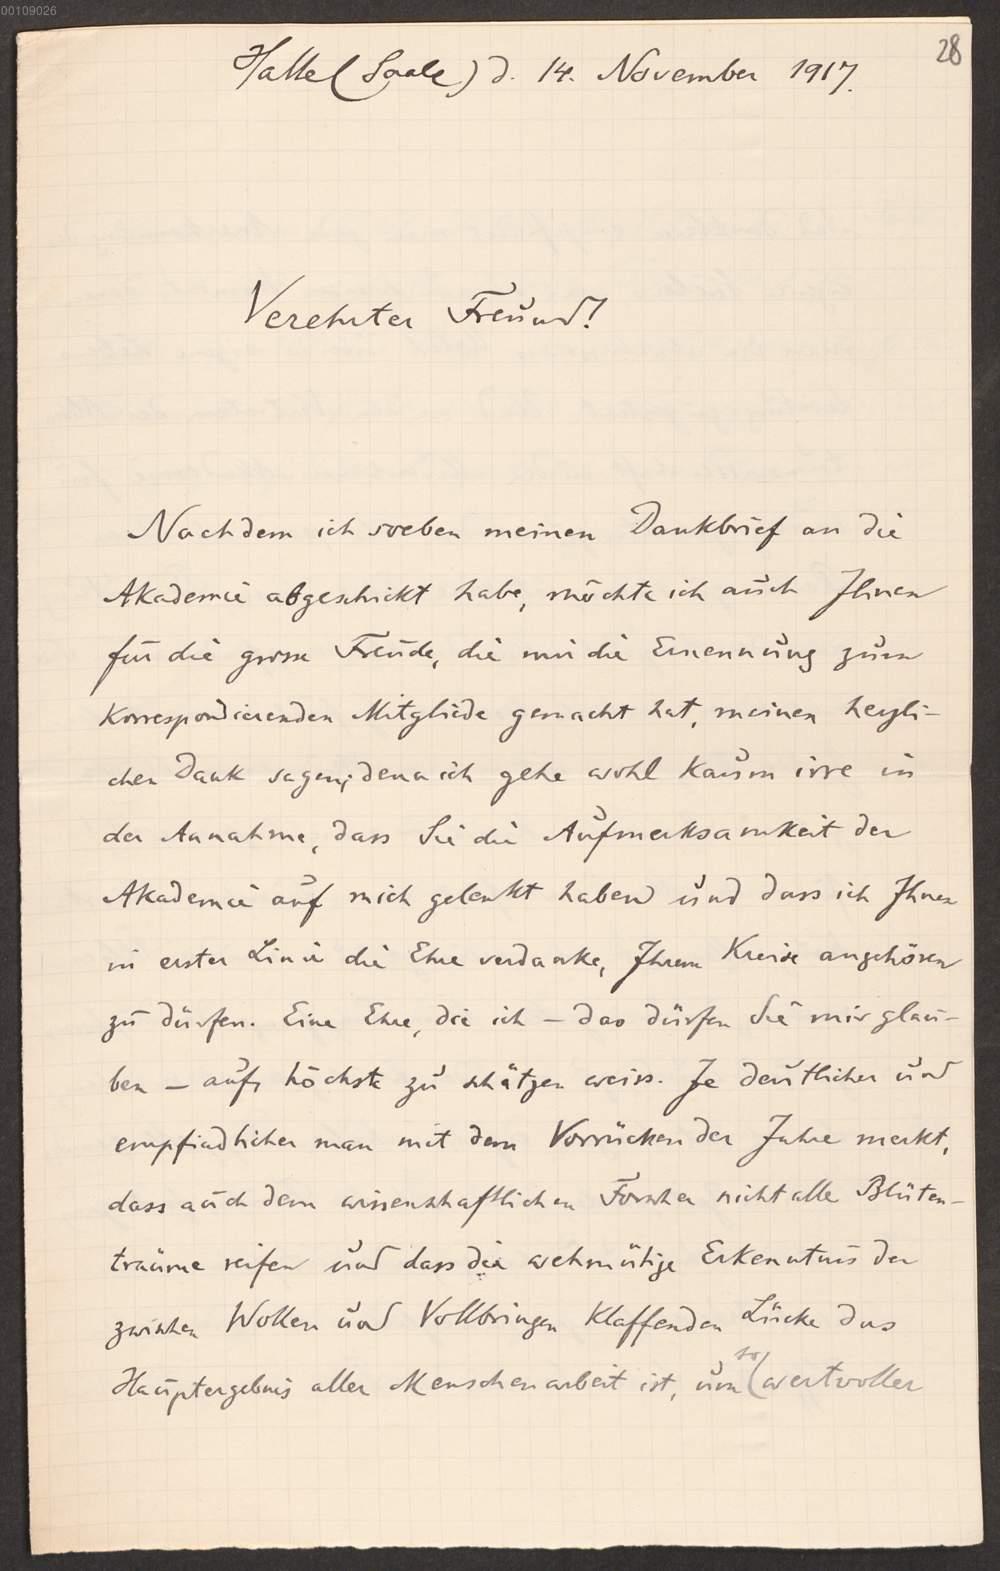 00109026
28
Halle (Saale) d. 14. November 1917.
Verehrter Freund!
Nachdem ich soeben meinen Dankbrief an die
Akademie abgeschickt habe, möchte ich auch Ihnen
für die grosse Freude, die mir die Ernennung zum
Korrespondierenden Mitgliede gemacht hat, meinen herzli-
chen Dank sagen; denn ich gehe wohl kaum irre in
der Annahme, dass Sie die Aufmerksamkeit der
Akademie auf mich gelenkt haben und dass ich Ihnen
in erster Linie die Ehre verdanke, Ihrem Kreise angehören
zu dürfen. Eine Ehre, die ich – das dürfen Sie mir glau-
ben – aufs höchste zu schätzen weiss. Je deutlicher und
empfindlicher man mit dem Vorrücken der Jahre merkt,
dass auch dem wissenschaftlichen Forscher nicht alle Blüten-
träume reifen und dass die wehmütige Erkenntnis der
zwischen Wollen und Vollbringen klaffenden Lücke das
Hauptergebnis aller Menschenarbeit ist, um so wertvoller